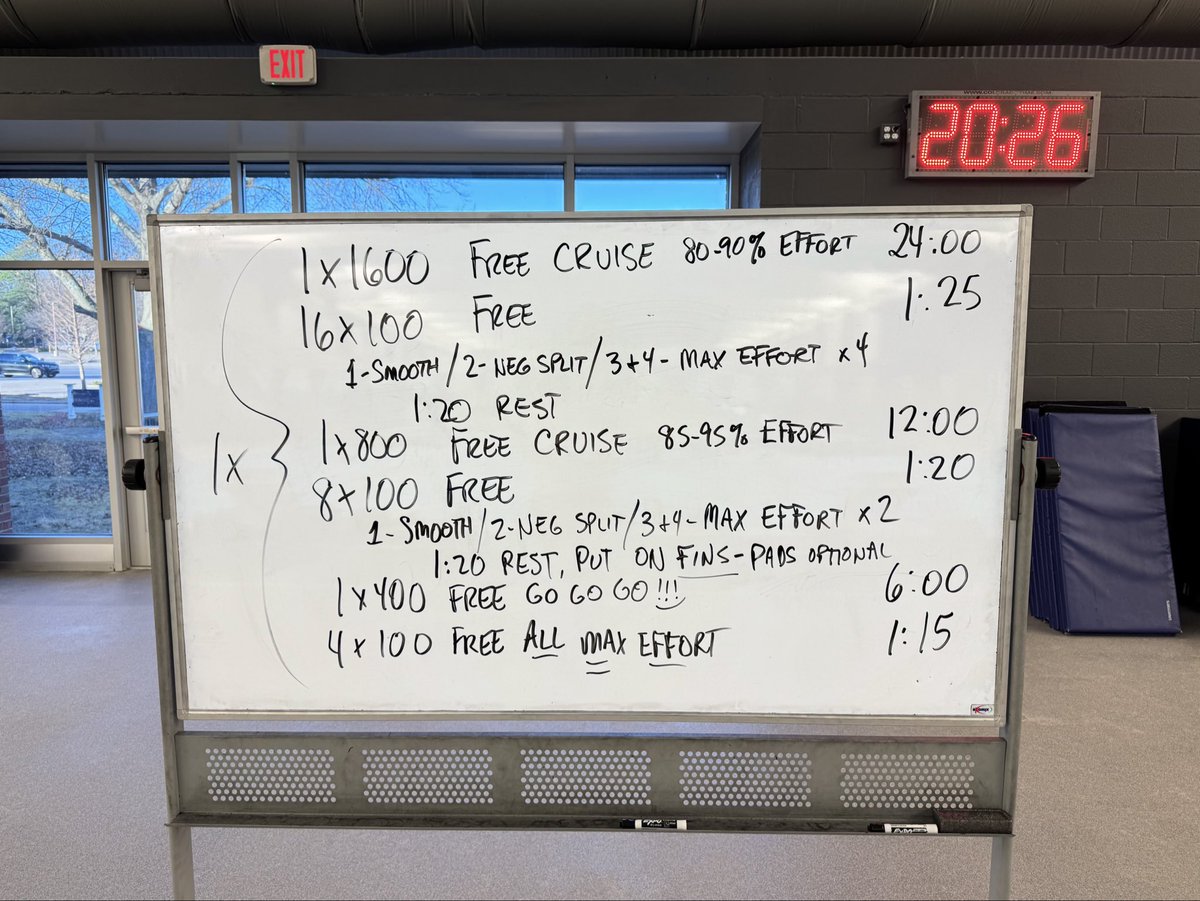 EXIT
20:26
1x1600 FREE CRUISE 80-90% EFFORT 24:00
16x100 FREE 1:25
1-SMOOTH/2-NEG SPLIT/3+4-MAX EFFORT x4
1:20 REST
1x800 FREE CRUISE 85-95% EFFORT 12:00
1x
8x100 FREE 1:20
1-SMOOTH/2-NEG SPLIT/3+4-MAX EFFORT x2
1:20 REST, PUT ON FINS-PADS OPTIONAL
1x400 FREE GO GO GO!!! 6:00
4x100 FREE ALL MAX EFFORT 1:15
EXPO